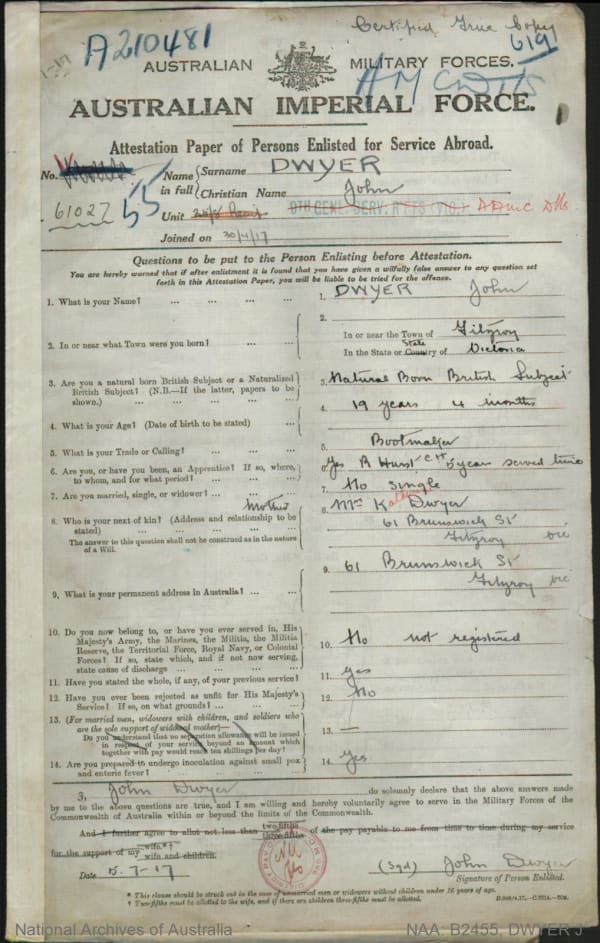 Certified True Copy
A210481
619
1-17
AUSTRALIAN MILITARY FORCES.
AUSTRALIAN IMPERIAL FORCE.
Attestation Paper of Persons Enlisted for Service Abroad.
No. 61027
Name in full
Surname DWYER
Christian Name John
Unit 8TH GENL. SERV. R'FTS (VIC.) AAMC Dtls
Joined on 30/4/17
Questions to be put to the Person Enlisting before Attestation.
You are hereby warned that if after enlistment it is found that you have given a wilfully false answer to any question set
forth in this Attestation Paper, you will be liable to be tried for the offence.
1. What is your Name? ... ... ... ...
1. DWYER John
2. In or near what Town were you born? ... ...
2.
In or near the Town of Fitzroy
In the State or Country of Victoria
3. Are you a natural born British Subject or a Naturalized
British Subject? (N.B.—If the latter, papers to be
shown.) ... ... ... ...
3. Natural Born British Subject
4. What is your Age? (Date of birth to be stated) ...
4. 19 years 4 months
5. What is your Trade or Calling? ... ... ...
5. Bootmaker
6. Are you, or have you been, an Apprentice? If so, where,
to whom, and for what period? ... ... ...
6. Yes R Hurst 5 years served time
7. Are you married, single, or widower? ... ...
7. No single
8. Who is your next of kin? (Address and relationship to be
stated) ... ... ... ...
Mother
The answer to this question shall not be construed as in the nature
of a Will.
8. Mrs K Dwyer
61 Brunswick St
Fitzroy Vic
9. What is your permanent address in Australia? ... ...
9. 61 Brunswick St
Fitzroy Vic
10. Do you now belong to, or have you ever served in, His
Majesty's Army, the Marines, the Militia, the Militia
Reserve, the Territorial Force, Royal Navy, or Colonial
Forces? If so, state which, and if not now serving,
state cause of discharge ... ... ...
10. No not registered
11. Have you stated the whole, if any, of your previous service?
11. yes
12. Have you ever been rejected as unfit for His Majesty's
Service? If so, on what grounds? ... ...
12. No
13. (For married men, widowers with children, and soldiers who
are the sole support of widowed mother—
Do you understand that no separation allowance will be issued
in respect of your service beyond an amount which
together with pay would reach ten shillings per day?
13. —
14. Are you prepared to undergo inoculation against small pox
and enteric fever? ... ... ...
14. Yes
I, John Dwyer do solemnly declare that the above answers made
by me to the above questions are true, and I am willing and hereby voluntarily agree to serve in the Military Forces of the
Commonwealth of Australia within or beyond the limits of the Commonwealth.
And I further agree to allot not less than two-fifths three-fifths of the pay payable to me from time to time during my service
for the support of my wife*† wife and children.
Date 15-7-17
(Sgd) John Dwyer
Signature of Person Enlisted.
* This clause should be struck out in the case of unmarried men or widowers without children under 16 years of age.
† Two-fifths must be allotted to the wife, and if there are children three-fifths must be allotted.
National Archives of Australia
NAA: B2455, DWYER J